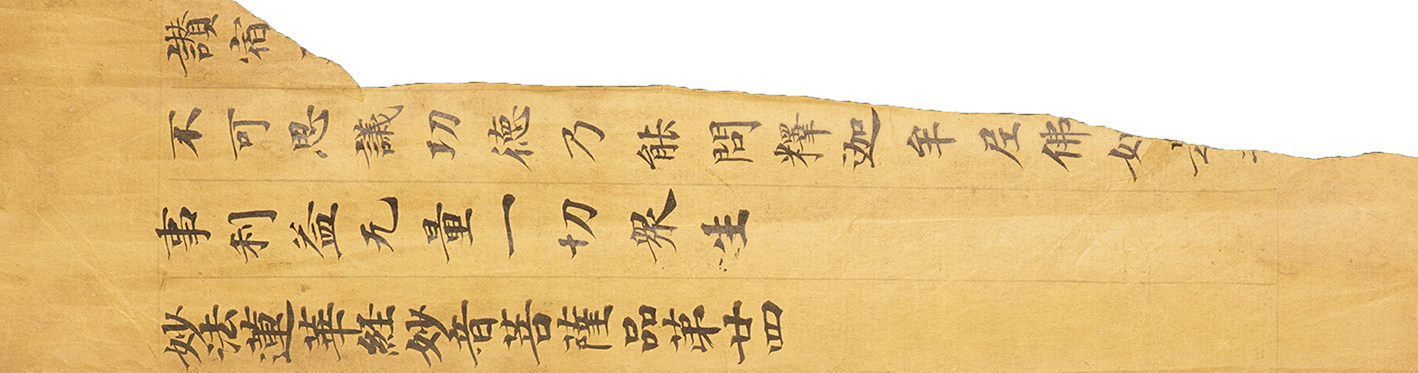 讚宿
不可思議功德乃能問釋迦牟尼佛如
事利益无量一切眾生
妙法蓮華経妙音菩薩品第廿四